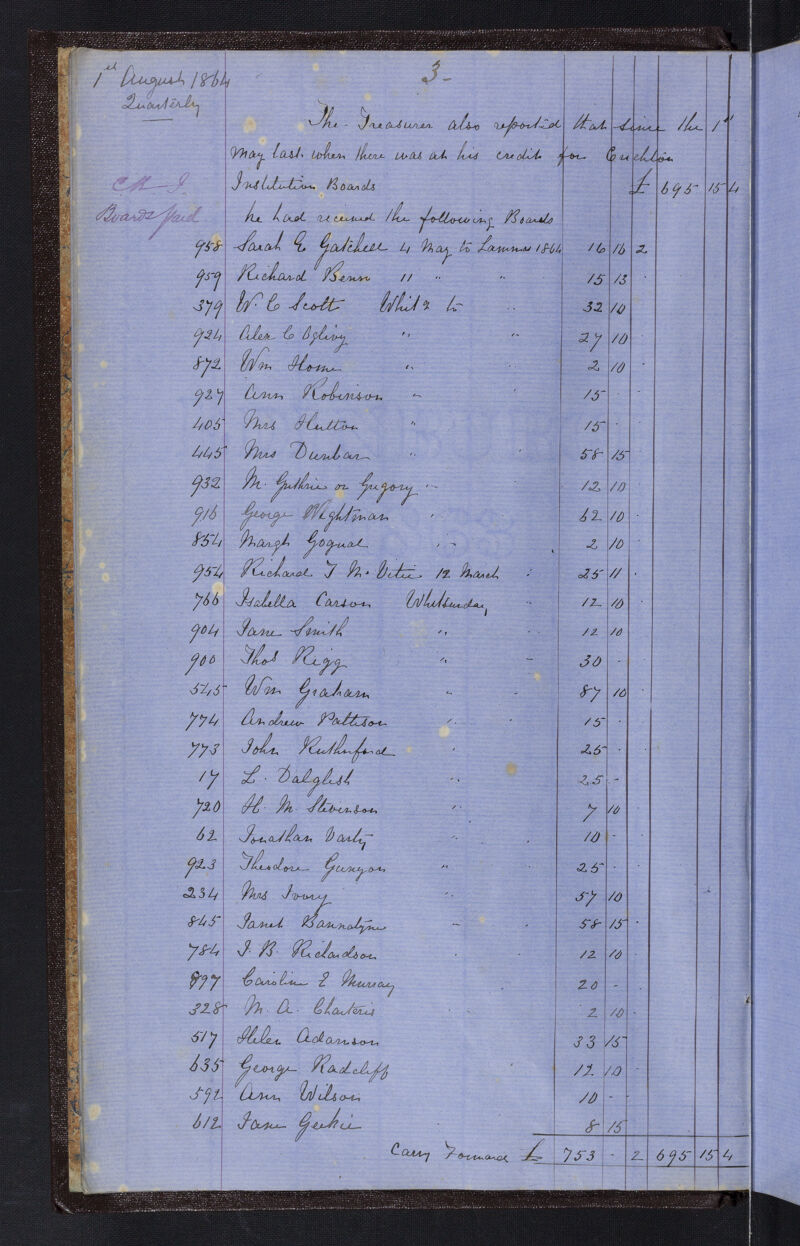 1st August 1864
Quarterly
3-
The Treasurer also reported that since the 1st
May last when there was at his credit for Crichton
Institution Boards £ 695 15 4
C R I.
Boards paid he had received the following Boards
958 Sarah E Gatchell 4 May to Lammas 1864 16 16 2
959 Richard Benn 11 " " 15 13 .
379 W. C Scott Whits to " 32 10
924 Alex C Ogilvy " " 27 10
872 Wm Home " 2 10
927 Ann Robinson " 15 . .
405 Mrs Hutton " 15 . .
445 Mrs Dunbar " 58 15
932 M. Guthrie or Gregory " 12 10
916 George Wightman " 62 10
854 Margt 2 10
954 Richard T McVitie 12 March " 25 11
766 Isabella Carson Whitsunday " 12 10
904 Jane Smith " 12 10
900 Thos Rigg " 30 -
545 Wm Graham " 87 10
774 Andrew Pattison " 15 .
773 John Rutherford " 25 .
17 L. Dalglish " 25 -
720 H. M. Stevenson " 7 10
62 Jonathan Varty " 10 -
923 Theodore Gunyon " 25 .
234 Mrs Ivory " 57 10
845 Janet Bannatyne " 58 15
784 J. B. Richardson 12 10
897 Caroline E Murray 20 -
328 M. A. Charteris 2 10
517 Helen Adamson 33 15
635 George Radcliff 12 10
592 Ann Wilson 10 -
612 Jane Geekie 8 15
Carry Forward £ 753 - 2 695 15 4